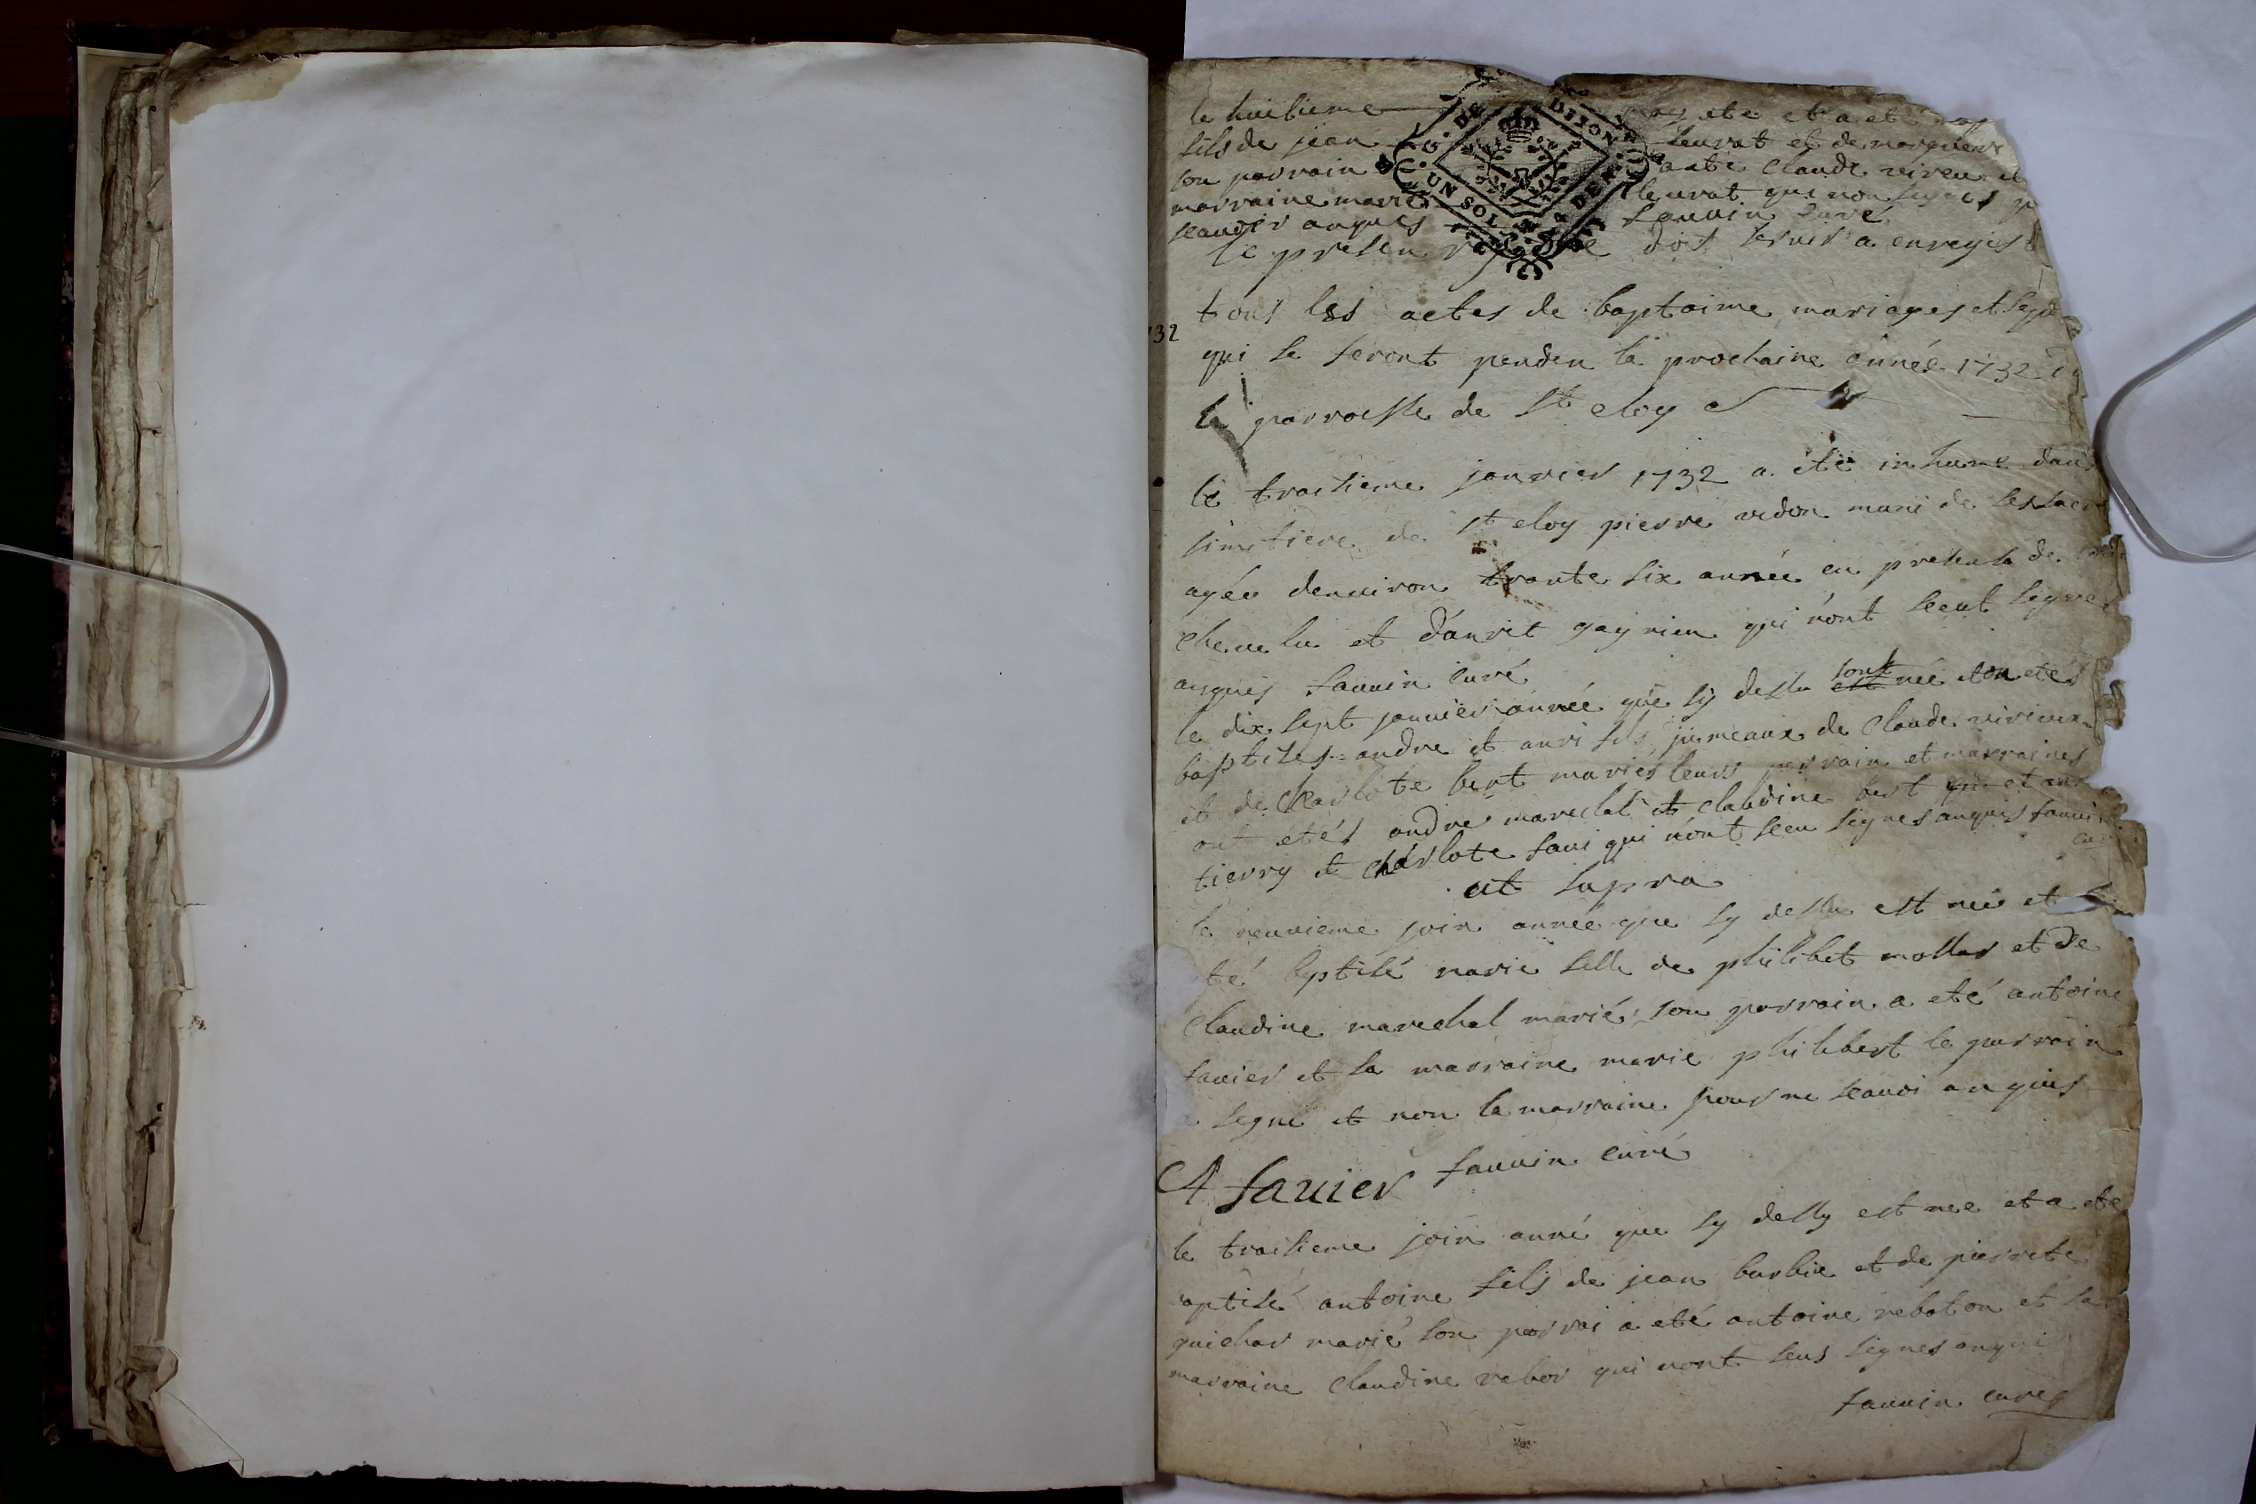 le huitieme ete et a ete
fils de jean leurat et de
son parrain a ate Claude
marraine marie leurat qui non
anquis fauuin curé
G. DE DIJON UN SOL
le presen doit seruir a enregis
tous les actes de baptaime mariages et
qui se feront penden la prochaine année 1732
la parroisse de st eloy
32
le troisieme januier 1732 a été inhume dans
simetiere de st eloy pierre muni de ses
agée denuiron trante six année en presence de
et qui nont sceut signer
anquis fauuin curé
le dix sept januier année que sy dessu est sont née eton etés
baptises andre et fils jumeaux de Claude
et de charlote bert mariés leurs parrain et marraines
ont etés andre marechal et claudine bert qui et
tierry et charlote qui nont sceu signes anquis fauuin
cur
ut supra
le neuuieme join année que sy dessu est née et
té baptisé marie fille de philibet mollar et de
Claudine marechal marié son parrain a eté antoine
fauier et sa marraine marie philibert le parrain
segné et non la marraine pour ne scauoi anquis
A fauier fauuin curé
le troisieme join anné que sy dessu est nee et a ete
baptisé antoine fils de jean barbie et de pierrete
guichar marié son parrai a eté antoine rebolon et sa
marraine Claudine rebor qui nont seus signes anqui
fauuin cures